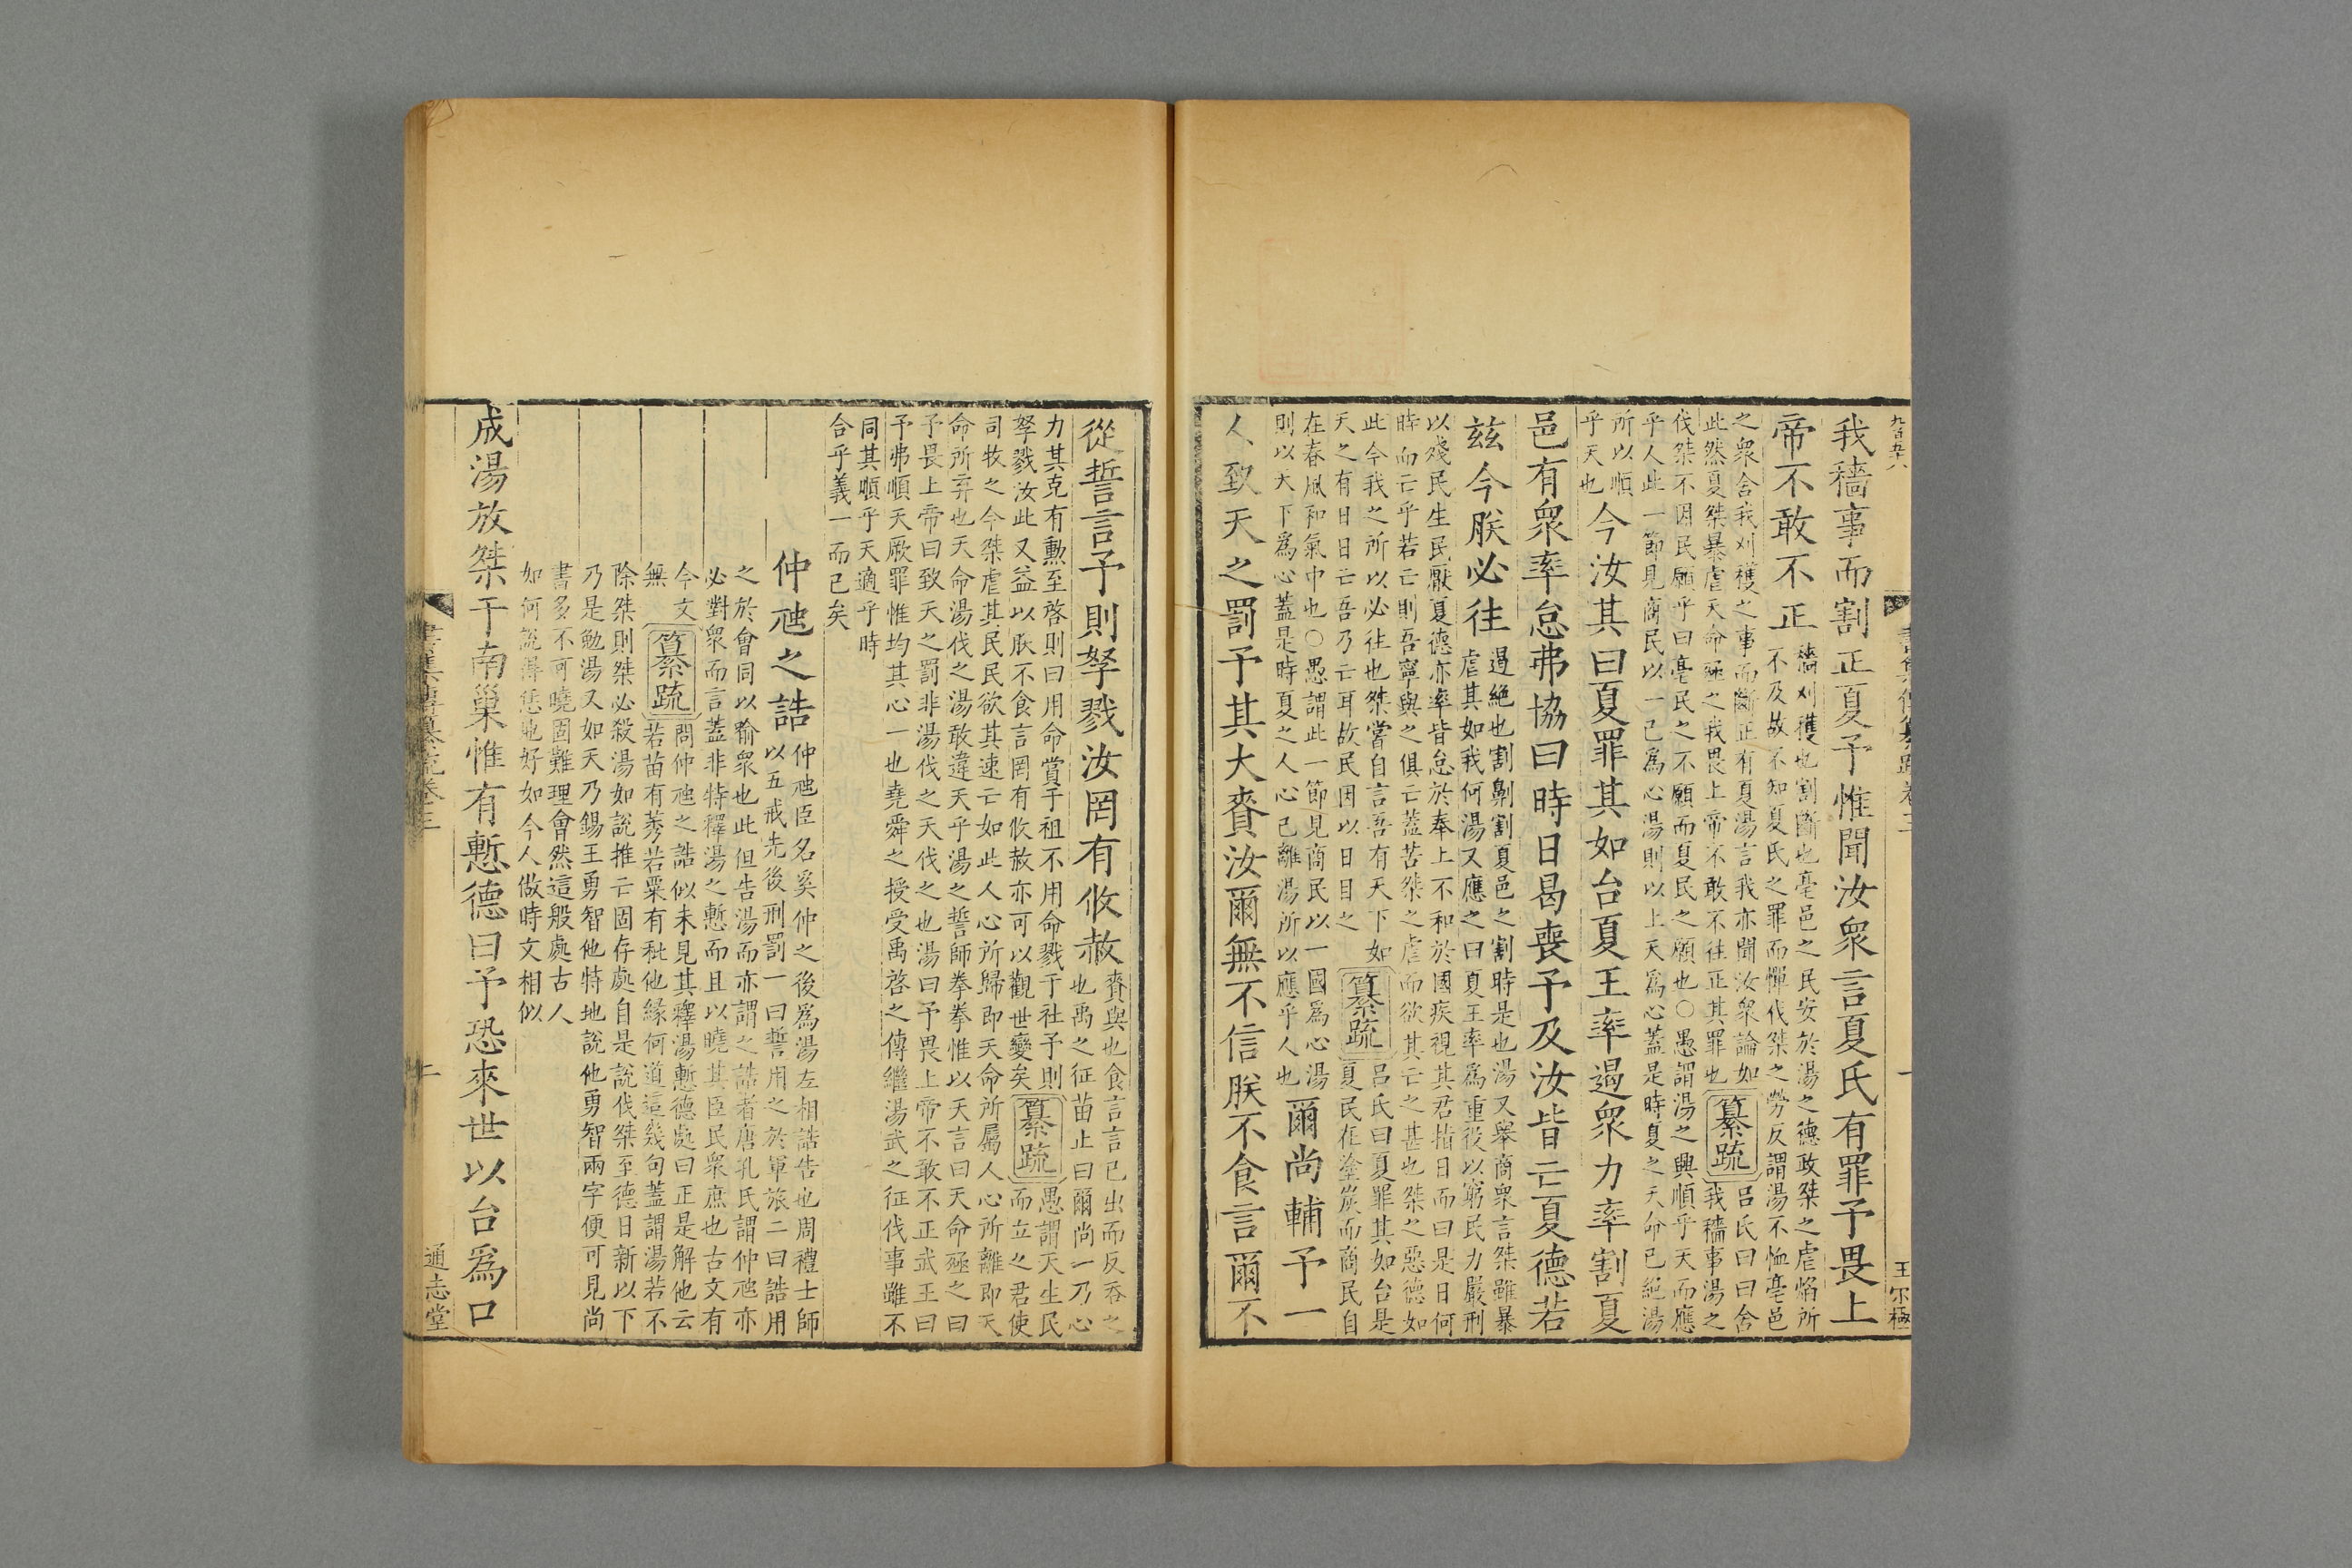 九百五十八
書集傳纂疏卷三
一
王尔極
我穡事而割正夏予惟聞汝衆言夏氏有罪予畏上
帝不敢不正
穡刈穫也割斷也亳邑之民安於湯之德政桀之虐焰所
不及故不知夏氏之罪而憚伐桀之勞反謂湯不恤亳邑
之衆舍我刈穫之事而斷正有夏湯言我亦聞汝衆論如
此然夏桀暴虐天命殛之我畏上帝不敢不往正其罪也
纂疏
呂氏曰曰舍
我穡事湯之
伐桀不因民願乎曰亳民之不願而夏民之願也○愚謂湯之興順乎天而應
乎人此一節見商民以一己為心湯則以上天為心蓋是時夏之天命已絕湯
所以順
乎天也
今汝其曰夏罪其如台夏王率遏衆力率割夏
邑有衆率怠弗協曰時日曷喪予及汝皆亡夏德若
茲今朕必往
遏絶也割劓割夏邑之割時是也湯又舉商衆言桀雖暴
虐其如我何湯又應之曰夏王率為重役以窮民力嚴刑
以殘民生民厭夏德亦率皆怠於奉上不和於國疾視其君指日而曰是日何
時而亡乎若亡則吾寧與之俱亡蓋苦桀之虐而欲其亡之甚也桀之惡德如
此今我之所以必往也桀嘗自言吾有天下如
天之有日日亡吾乃亡耳故民因以日目之
纂疏
呂氏曰夏罪其如台是
夏民在塗炭而商民自
在春風和氣中也○愚謂此一節見商民以一國爲心湯
則以天下爲心蓋是時夏之人心已離湯所以應乎人也
爾尚輔予一
人致天之罰予其大賚汝爾無不信朕不食言爾不
從誓言予則孥戮汝罔有攸赦
賚與也食言言已出而反吞之
也禹之征苗止曰爾尚一乃心
力其克有勳至啓則曰用命賞于祖不用命戮于社予則
孥戮汝此又益以朕不食言罔有攸赦亦可以觀世變矣
纂疏
愚謂天生民
而立之君使
司牧之今桀虐其民民欲其速亡如此人心所歸即天命所屬人心所離即天
命所弃也天命湯伐之湯敢違天乎湯之誓師拳拳惟以天言曰天命殛之曰
予畏上帝曰致天之罰非湯伐之天伐之也湯曰予畏上帝不敢不正武王曰
予弗順天厥罪惟均其心一也堯舜之授受禹啓之傳繼湯武之征伐事雖不
同其順乎天適乎時
合乎義一而已矣
仲虺之誥
仲虺臣名奚仲之後爲湯左相誥告也周禮士師
以五戒先後刑罰一曰誓用之於軍旅二曰誥用
之於會同以喻衆也此但告湯而亦謂之誥者唐孔氏謂仲虺亦
必對衆而言蓋非特釋湯之慙而且以曉其臣民衆庶也古文有
今文
無
纂疏
問仲虺之誥似未見其釋湯慙德處曰正是解他云
若苗有莠若粟有秕他緣何道這幾句蓋謂湯若不
除桀則桀必殺湯如說推亡固存處自是說伐桀至德日新以下
乃是勉湯又如天乃錫王勇智他特地說他勇智兩字便可見尚
書多不可曉固難理會然這般處古人
如何說得恁地好如今人做時文相似
成湯放桀于南巢惟有慙德曰予恐來世以台爲口
書集傳纂疏卷三
二
通志堂